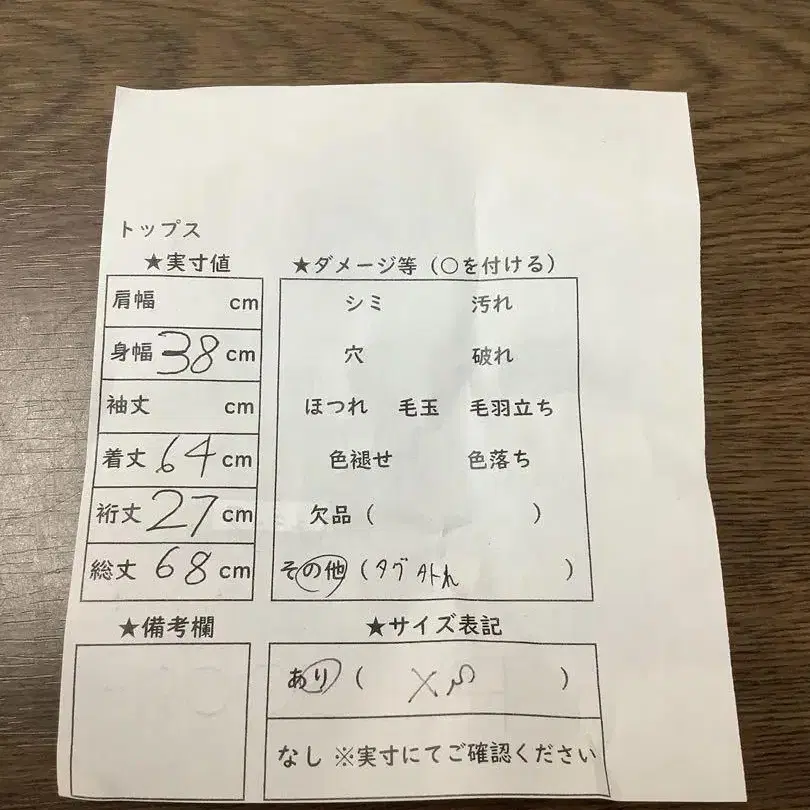 トップス
★実寸値
肩幅 cm
身幅 38 cm
袖丈 cm
着丈 64 cm
裄丈 27 cm
総丈 68 cm
★ダメージ等（○を付ける）
シミ 汚れ
穴 破れ
ほつれ 毛玉 毛羽立ち
色褪せ 色落ち
欠品（ ）
その他（タグ外れ ）
★備考欄
★サイズ表記
あり（ XS ）
なし ※実寸にてご確認ください